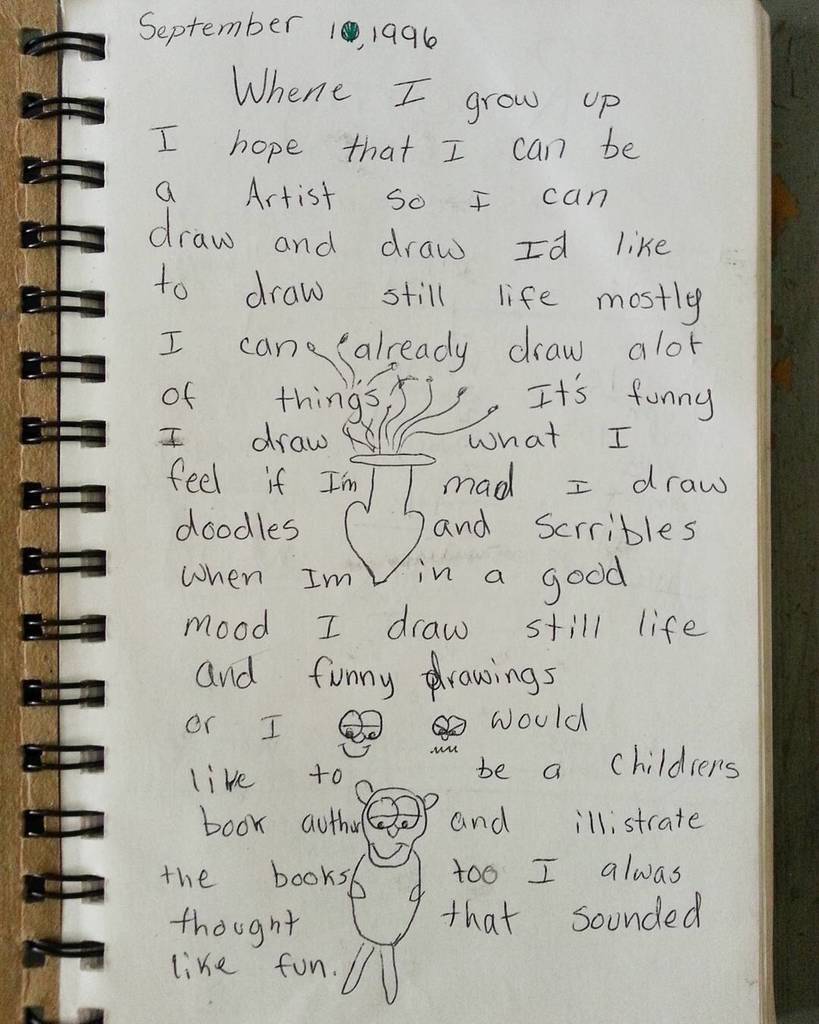 September 10, 1996
Whene I grow up
I hope that I can be
a Artist so I can
draw and draw I'd like
to draw still life mostly
I can already draw alot
of things It's funny
I draw what I
feel if I'm mad I draw
doodles and Scrribles
when Im in a good
mood I draw still life
and funny drawings
or I would
like to be a childrens
book authur and illistrate
the books too I alwas
thought that sounded
like fun.